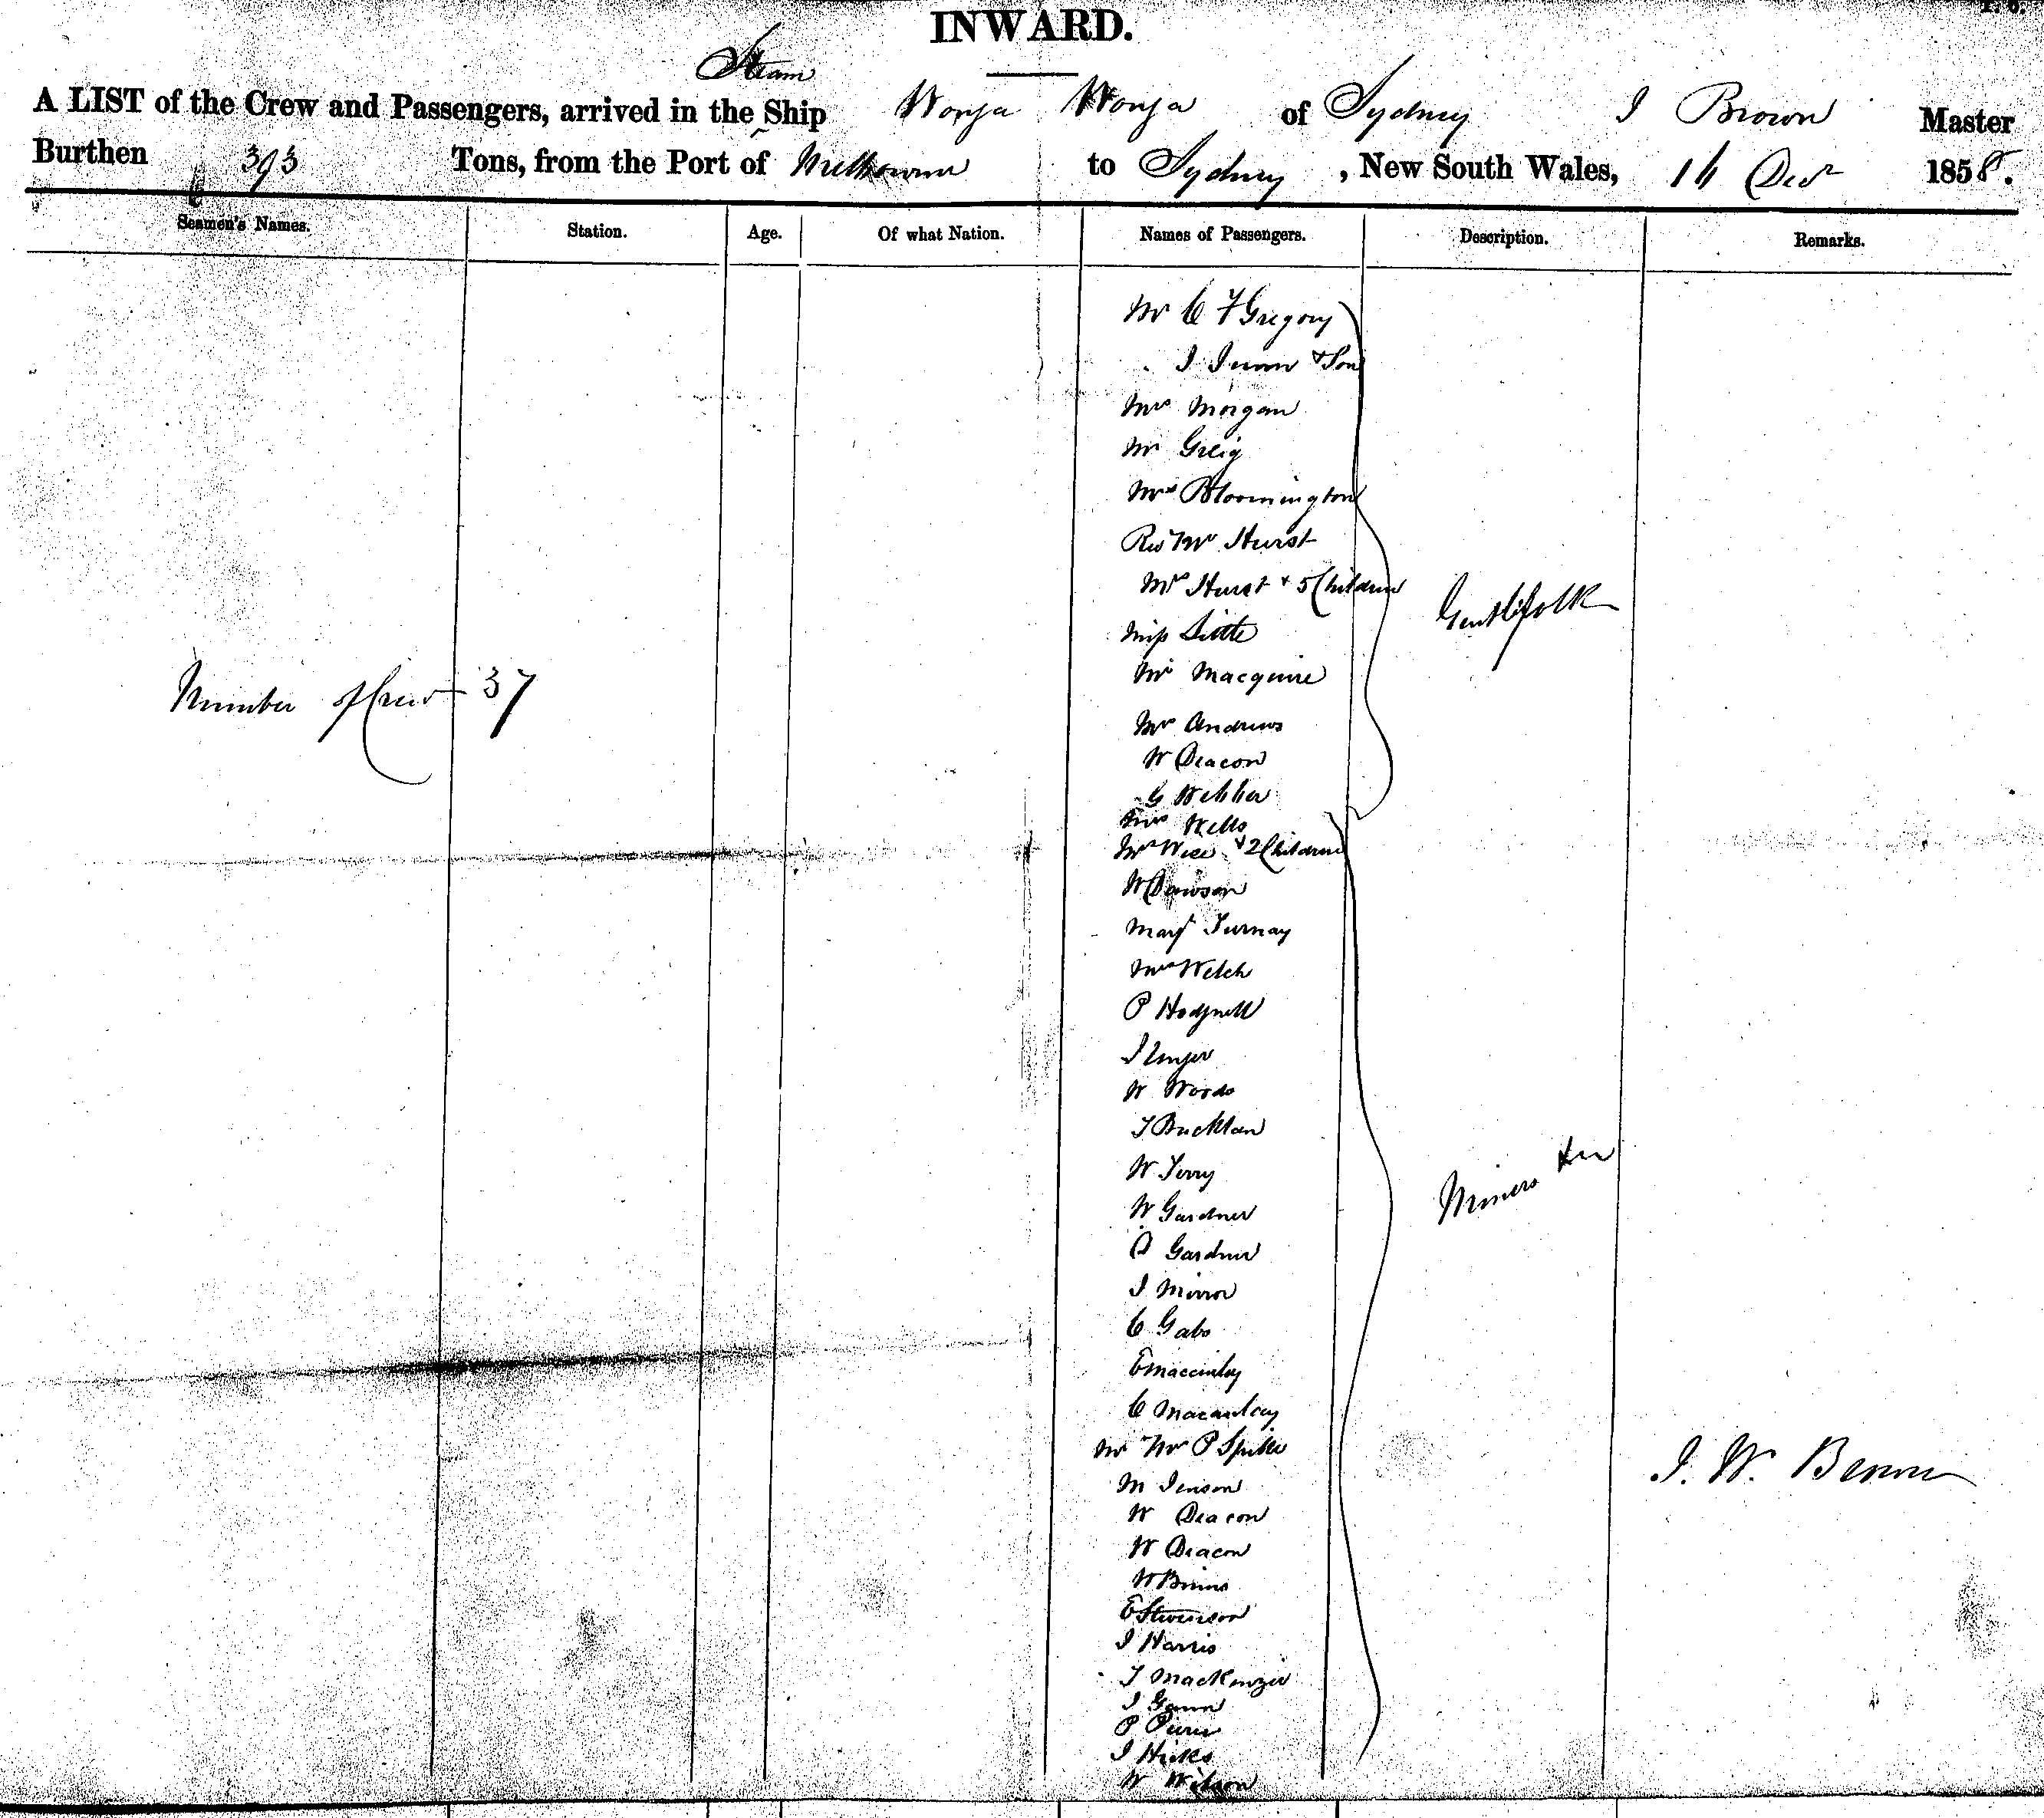 INWARD.
Steam
A LIST of the Crew and Passengers, arrived in the Ship Wonga Wonga of Sydney J Brown Master
Burthen 393 Tons, from the Port of Melbourne to Sydney, New South Wales, 16 Decr 1858.
Seamen's Names. Station. Age. Of what Nation. Names of Passengers. Description. Remarks.
Mr C F Gregory
J & Son
Mrs Morgan
Mr Greig
Mrs Bloomington
Rev Mr Hurst
Mrs Hurst + 5 Children
Gentlefolk
Miss Little
Mr Macquire
Number of Crew 37
Mr Andrews
W Deacon
G Webber
Wells
Mrs Wise & 2 Children
W Dawson
Mary Turnay
Mrs Welch
P Hodgnell
J
W Woods
J Bucklan
Miners &c
W Terry
W Gardner
A Gardner
J Mirror
C Gabo
E
C Macaulay
Mr P
J. W. Brown
M Jenson
W Deacon
W Deacon
W
E Stevenson
J Harris
J MacKenzie
J Gann
P
J Hicks
W Wilson